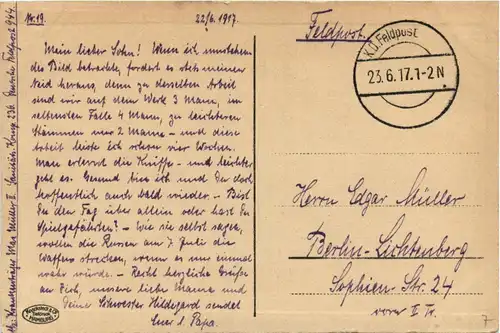 Nr. 19.
22/6. 1917.
Mein lieber Sohn! Wenn ich umstehen-
des Bild betrachte, fordert es stets meinen
Neid heraus, denn zu derselben Arbeit
sind wir auf dem Werk 3 Mann, im
seltensten Falle 4 Mann, zu leichteren
Stämmen nur 2 Mann - und diese
Arbeit leiste ich schon vier Wochen.
Man erlernt die Kniffe - und leichter
geht es. Gesund bin ich und Du doch
hoffentlich auch bald wieder. - Bist
Du den Tag über allein oder hast Du
Spielgefährten? - Wie sie selbst sagen,
wollen die Russen am 7. Juli die
Waffen strecken, wenn es nur einmal
wahr würde. - Recht herzliche Grüße
an Dich, unsere liebe Mama und
Deine Schwester Hildegard sendet
Euer l. Papa.
Krankenträger Max Müller II. Sanitäts Komp. 236. Deutsche Feldpost 944.
Feldpost.
K.D. Feldpost
23.6.17.1-2N
Herrn Edgar Müller
Berlin-Lichtenberg
Sophien-Str. 24
vorn II Tr.
HAMBURG